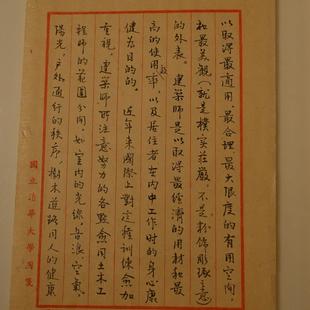 以取得最適用,最合理最大限度的有用空间,
和最美觀(就是樸实莊嚴,不是粉飾彫琢主意)
的外表。建築师是以取得最經濟的用材和最
高的使用,以及居住者在内中工作時的身心康
健为目的的。 近年来國際上對這種訓練愈加
重視,建築师所注意努力的各點愈同土木工
程师的范围分開,如室内的光線,音浪,空氣,
陽光,户外通行的秩序,樹木道路同人的健康
國立清華大學用箋